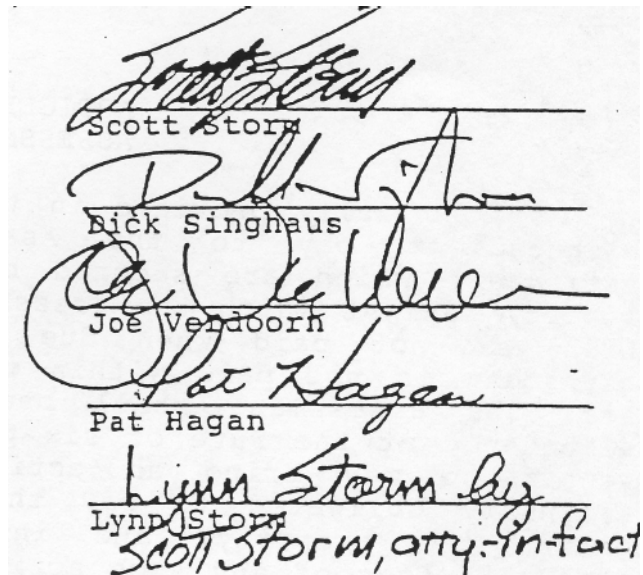 Scott Storm
Scott Storm
Dick Singhaus
Joe Verdoorn
Pat Hagan
Pat Hagan
Lynn Storm by
Lynn Storm
Scott Storm, atty-in-fact